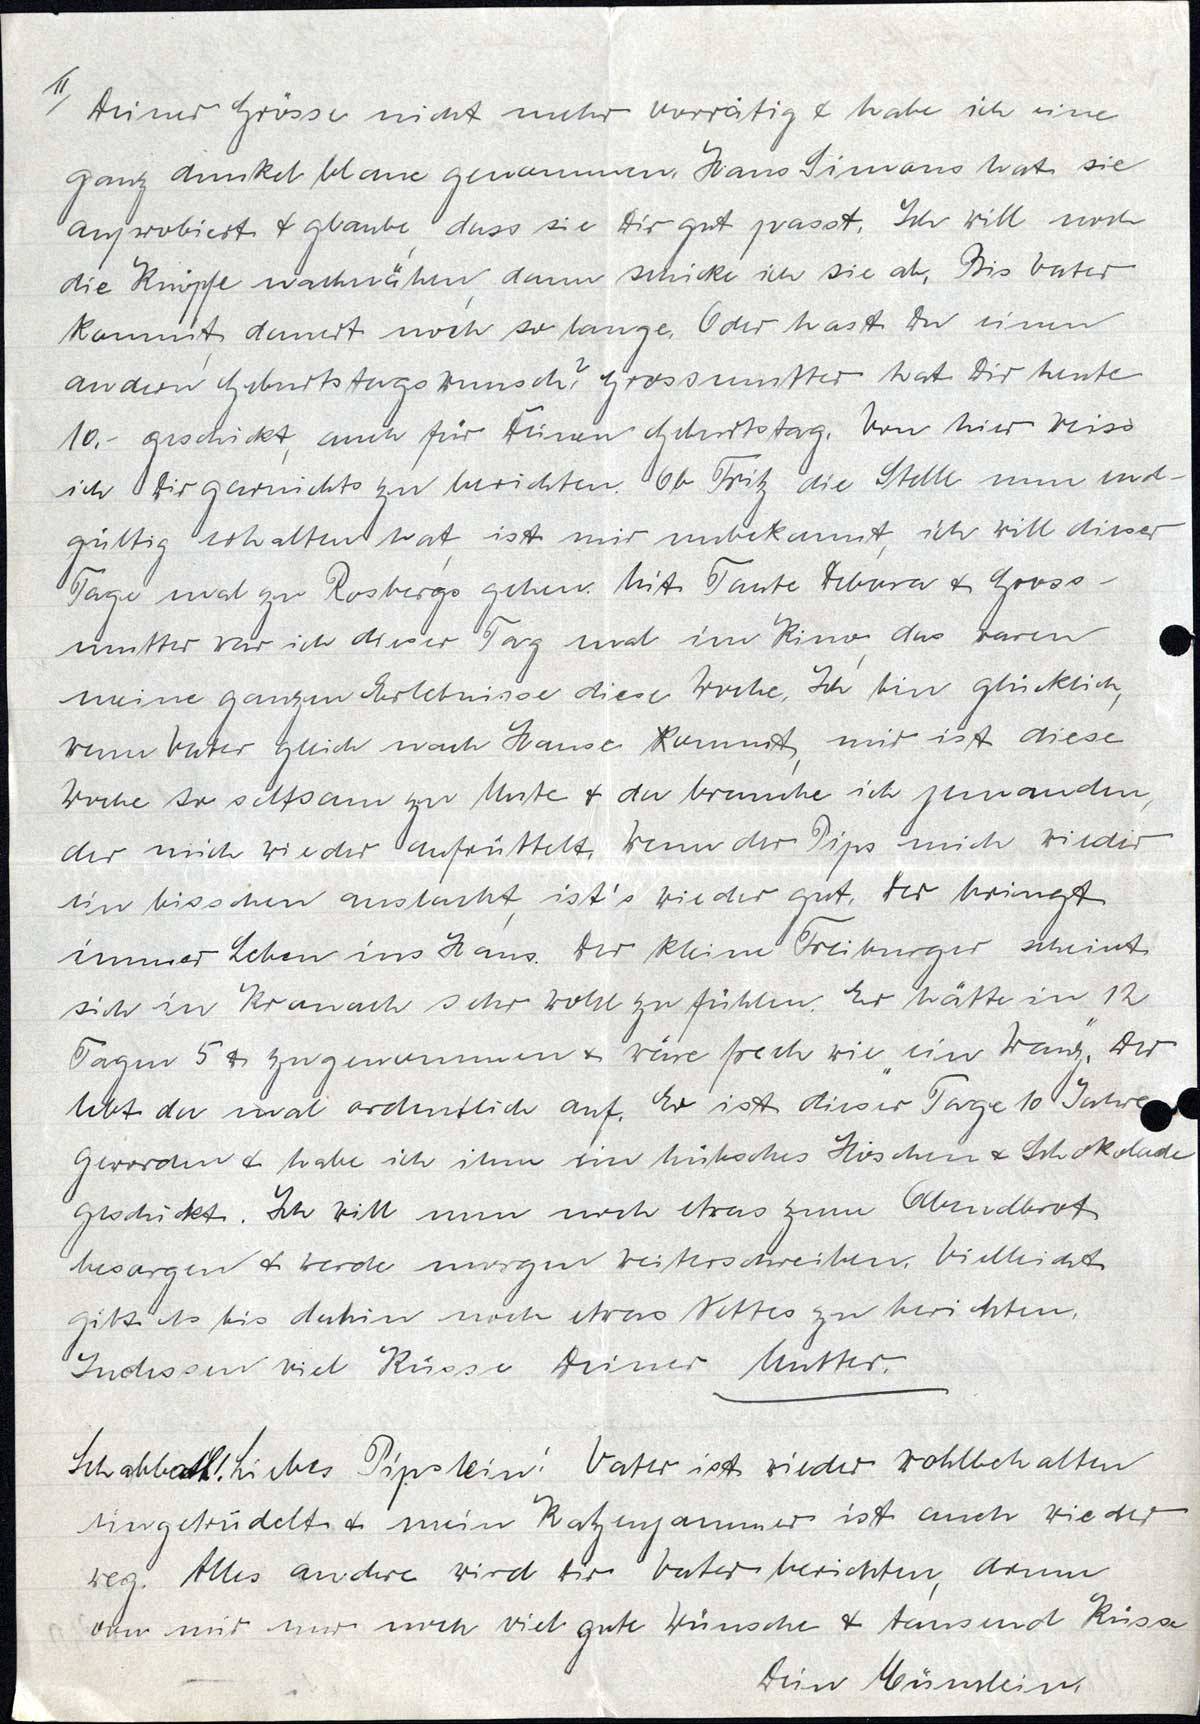 II/
Deiner Grösse nicht mehr vorrätig & habe ich eine
ganz dunkel blaue genommen. Hans Simons hat sie
anprobiert & glaube, dass sie Dir gut passt. Ich will noch
die Knöpfe nachnähen, dann schicke ich sie ab. Bis Vater
kommt, dauert noch so lange. Oder hast Du einen
andern Geburtstagswunsch? Grossmutter hat Dir heute
10.- geschickt, auch für Deinen Geburtstag. Von hier weiss
ich Dir garnichts zu berichten. Ob Fritz die Stelle nun end-
gültig erhalten hat, ist mir unbekannt, ich will dieser
Tage mal zu Rosbergs gehen. Mit Tante Debora & Gross-
mutter war ich dieser Tag mal im Kino, das waren
meine ganzen Erlebnisse diese Woche. Ich bin glücklich,
wenn Vater gleich nach Hause kommt, mir ist diese
Woche so seltsam zu Mute & da brauche ich jemanden,
der mich wieder aufrüttelt. Wenn der Pips mich wieder
ein bisschen auslacht, ist's wieder gut. Der bringt
immer Leben ins Haus. Der kleine Freiburger scheint
sich in Kronach sehr wohl zu fühlen. Er hätte in 12
Tagen 5 ℔ zugenommen & wäre frech wie „ein Wanz". Der
lebt da mal ordentlich auf. Er ist dieser Tage 10 Jahre
geworden & habe ich ihm ein hübsches Höschen & Schokolade
geschickt. Ich will nun noch etwas zum Abendbrot
besorgen & werde morgen weiterschreiben. Vielleicht
gibt es bis dahin noch etwas Nettes zu berichten.
Indessen viel Küsse Deiner Mutter.
Schabbath! Liebes Pipslein! Vater ist wieder wohlbehalten
eingetrudelt & mein Katzenjammer ist auch wieder
weg. Alles andere wird Dir Vater berichten, drum
von mir nur noch viel gute Wünsche & tausend Küsse
Dein